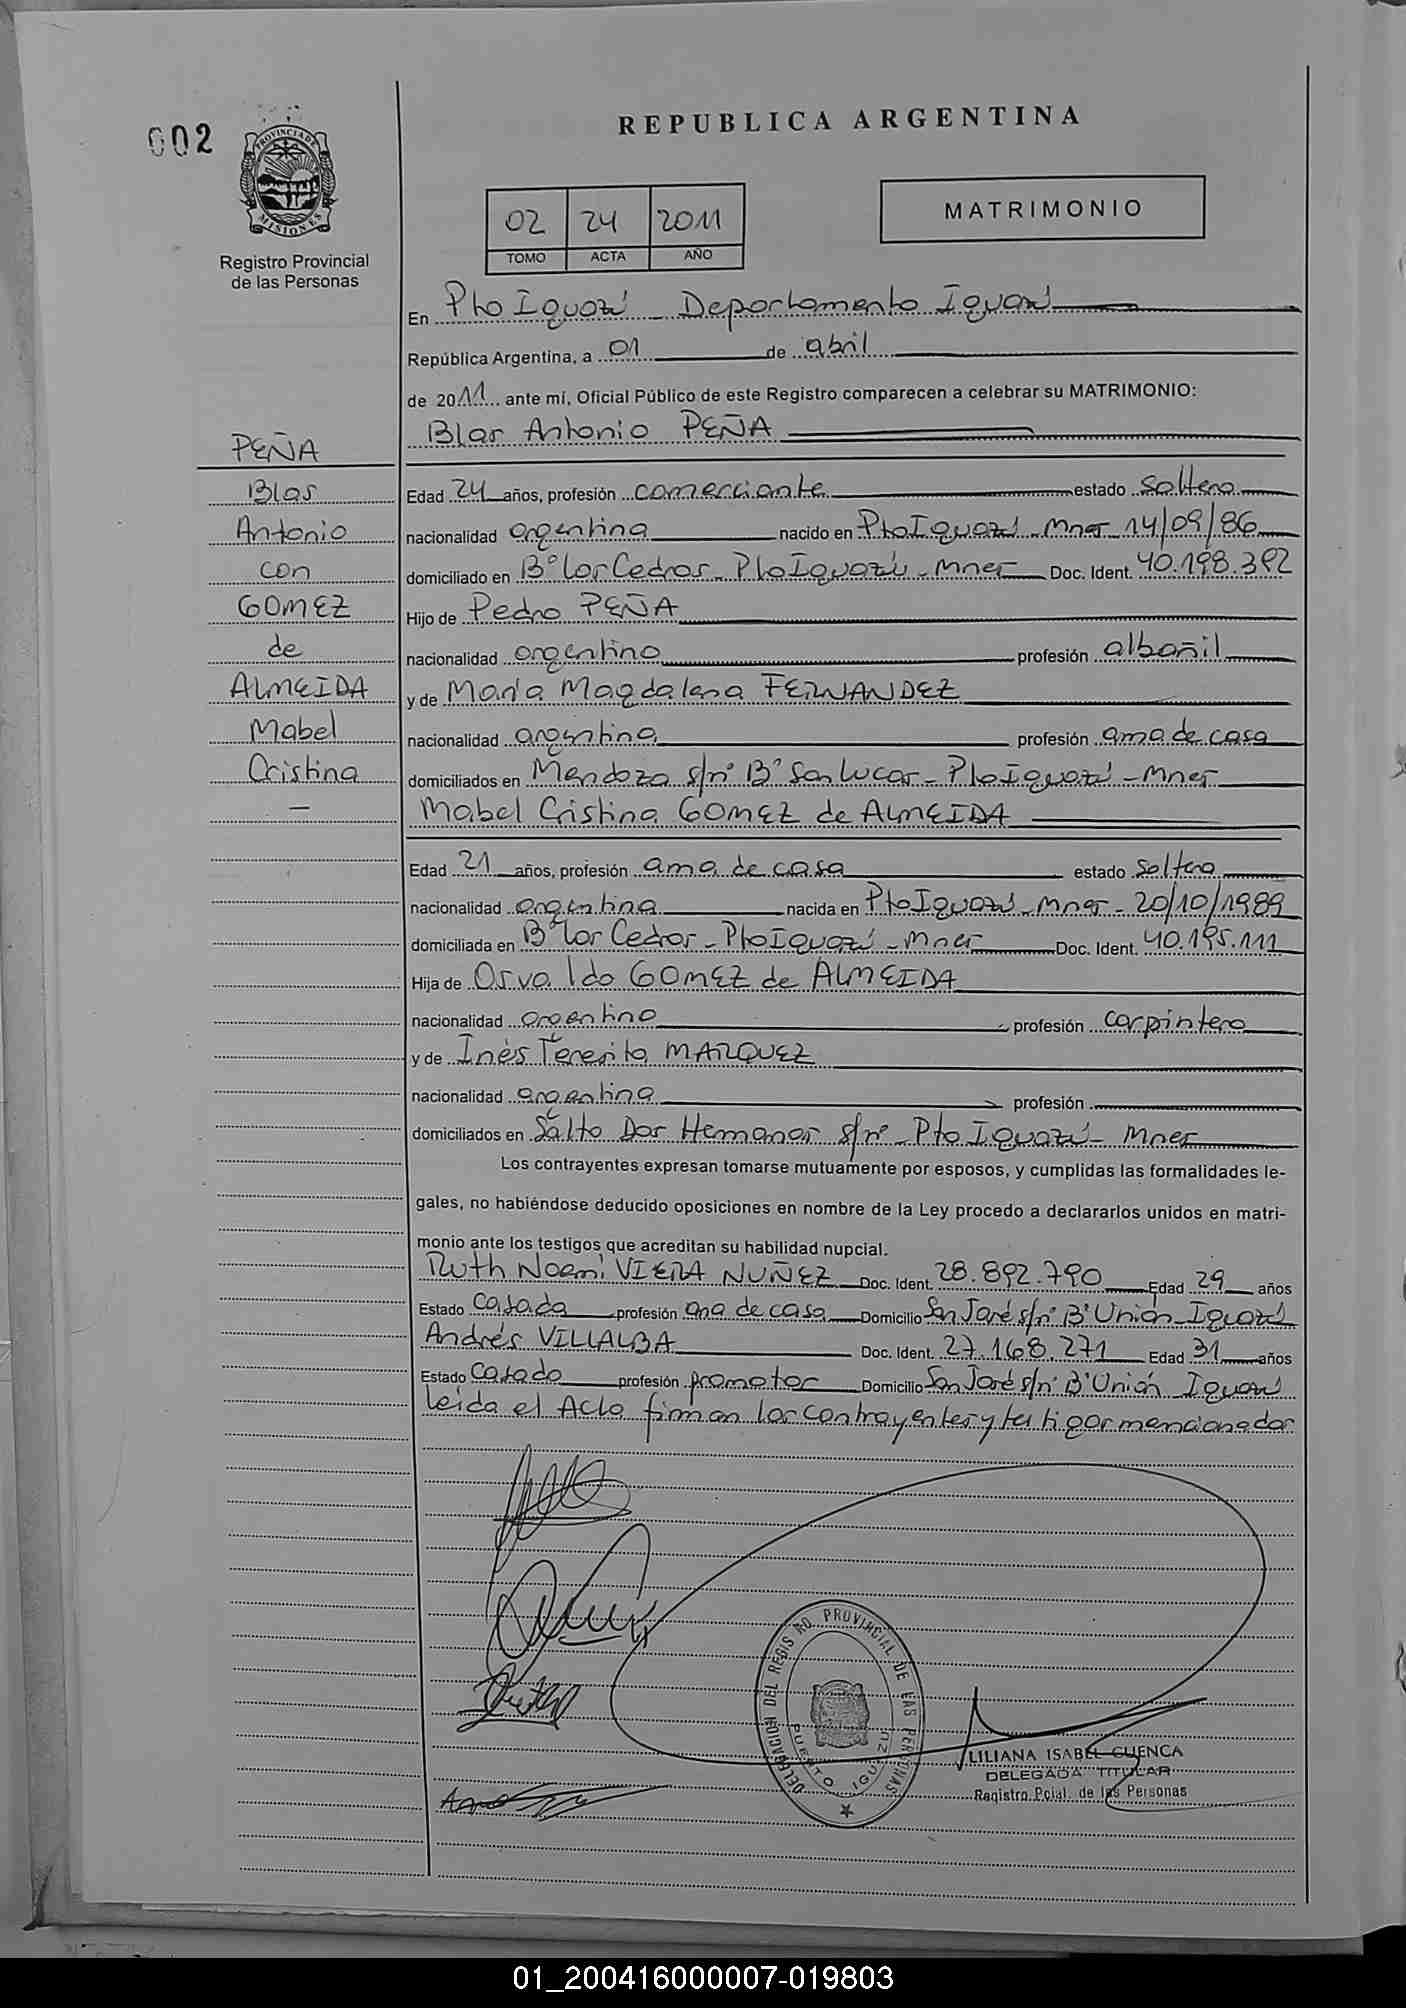 002
PROVINCIA DE
MISIONES
Registro Provincial
de las Personas
REPUBLICA ARGENTINA
02 24 2011
TOMO ACTA AÑO
MATRIMONIO
En Pto Iguazú - Departamento Iguazú
República Argentina, a 01 de abril
de 2011 ante mí, Oficial Público de este Registro comparecen a celebrar su MATRIMONIO:
Blas Antonio PEÑA
PEÑA
Blas
Antonio
con
GOMEZ
de
ALMEIDA
Mabel
Cristina
—
Edad 24 años, profesión comerciante estado soltero
nacionalidad argentina nacido en Pto Iguazú - Mnes 14/09/86
domiciliado en B° Los Cedros - Pto Iguazú - Mnes Doc. Ident. 40.198.382
Hijo de Pedro PEÑA
nacionalidad argentino profesión albañil
y de María Magdalena FERNANDEZ
nacionalidad argentina profesión ama de casa
domiciliados en Mendoza s/n° B° San Lucas - Pto Iguazú - Mnes
Mabel Cristina GOMEZ de ALMEIDA
Edad 21 años, profesión ama de casa estado soltera
nacionalidad argentina nacida en Pto Iguazú - Mnes - 20/10/1989
domiciliada en B° Los Cedros - Pto Iguazú - Mnes Doc. Ident. 40.195.111
Hija de Osvaldo GOMEZ de ALMEIDA
nacionalidad argentino profesión carpintero
y de Inés Teresita MARQUEZ
nacionalidad argentina profesión
domiciliados en Salto Dos Hermanas s/n° - Pto Iguazú - Mnes
Los contrayentes expresan tomarse mutuamente por esposos, y cumplidas las formalidades le-
gales, no habiéndose deducido oposiciones en nombre de la Ley procedo a declararlos unidos en matri-
monio ante los testigos que acreditan su habilidad nupcial.
Ruth Noemi VIERA NUÑEZ Doc. Ident. 28.892.790 Edad 29 años
Estado casada profesión ama de casa Domicilio San José s/n° B° Unión - Iguazú
Andrés VILLALBA Doc. Ident. 27.168.271 Edad 31 años
Estado casado profesión promotor Domicilio San José s/n° B° Unión Iguazú
Leída el Acta firman los contrayentes y testigos mencionados
DELEGACION DEL REGISTRO PROVINCIAL DE LAS PERSONAS
PUERTO IGUAZU
LILIANA ISABEL CUENCA
DELEGADA TITULAR
Registro Pcial. de las Personas
01_200416000007-019803